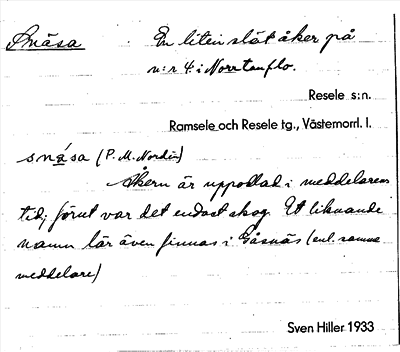 Snåsa En liten slät åker på
n:r 4 i Norrtanflo.
Resele s:n.
Ramsele och Resele tg., Västernorrl. l.
snå̀sa (P. M. Nordin)
Åkern är uppodlad i meddelarens
tid; förut var det endast skog. Ett liknande
namn lär även finnas i Gåsnäs (enl. samma
meddelare)
Sven Hiller 1933